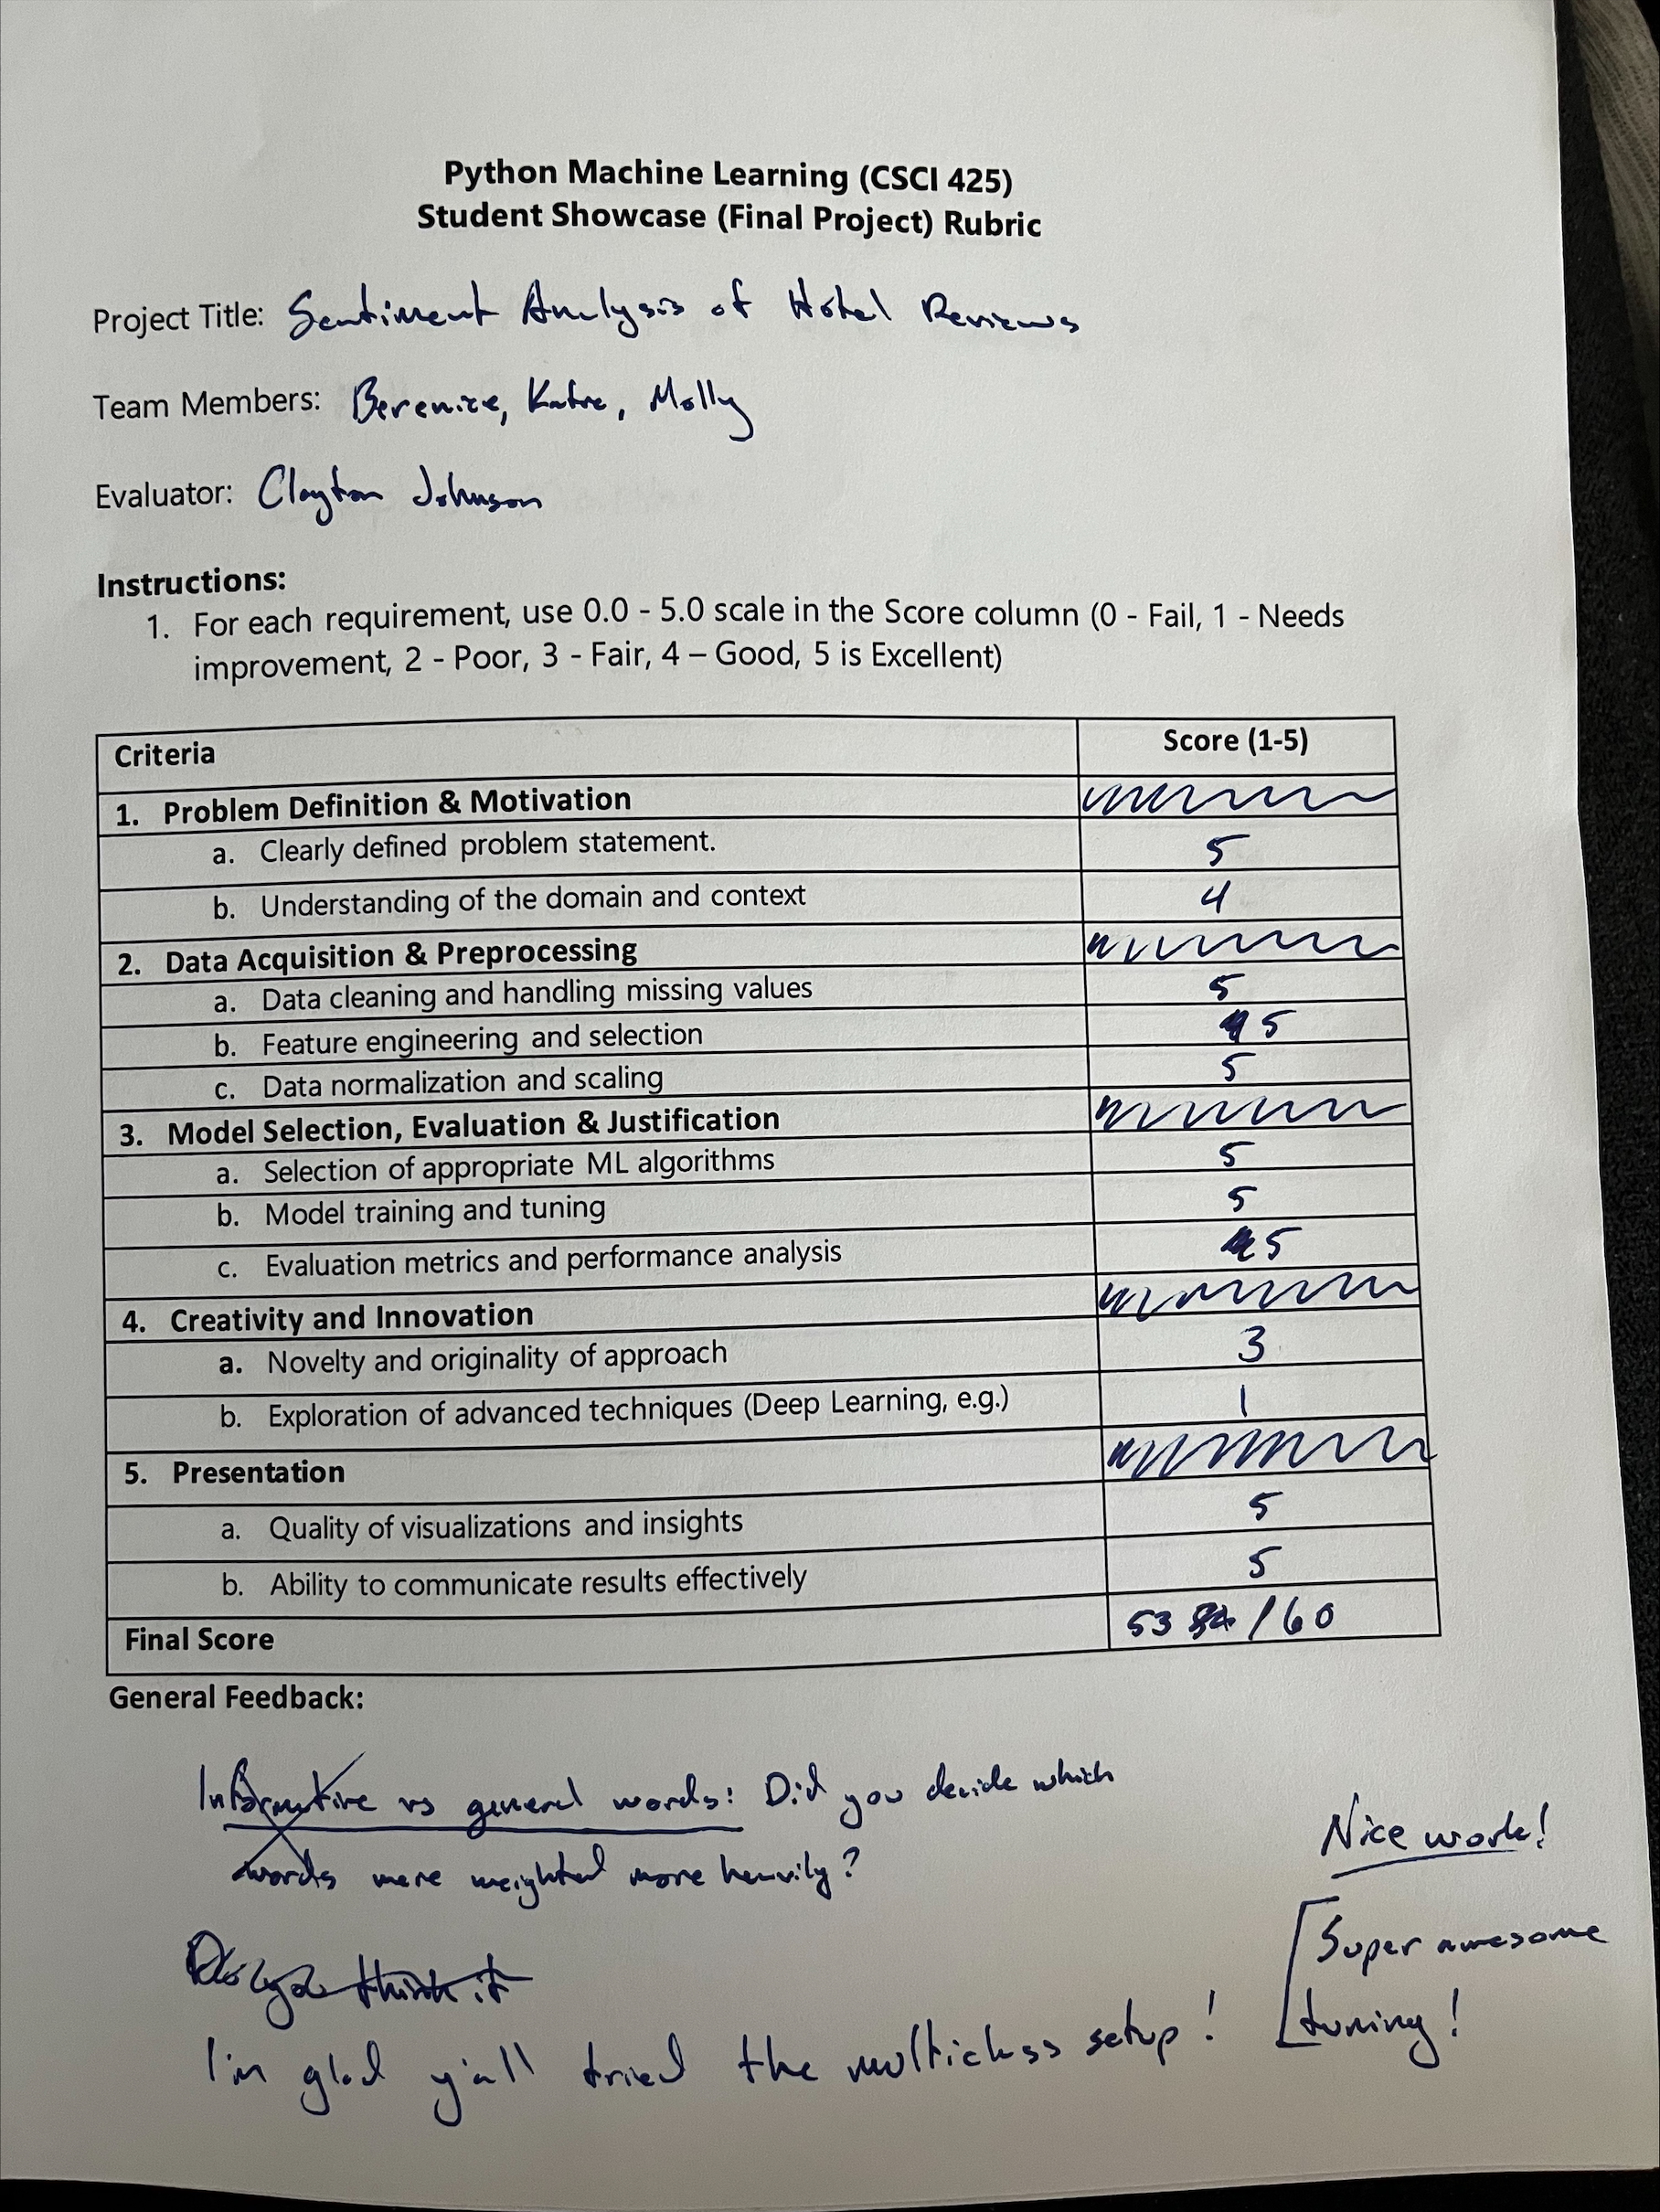 Python Machine Learning (CSCI 425)
Student Showcase (Final Project) Rubric
Project Title: Sentiment Analysis of Hotel Reviews
Team Members: Berenice, Katie, Molly
Evaluator: Clayton Johnson
Instructions:
1. For each requirement, use 0.0 - 5.0 scale in the Score column (0 - Fail, 1 - Needs
improvement, 2 - Poor, 3 - Fair, 4 – Good, 5 is Excellent)
Criteria Score (1-5)
1. Problem Definition & Motivation
a. Clearly defined problem statement. 5
b. Understanding of the domain and context 4
2. Data Acquisition & Preprocessing
a. Data cleaning and handling missing values 5
b. Feature engineering and selection 5
c. Data normalization and scaling 5
3. Model Selection, Evaluation & Justification
a. Selection of appropriate ML algorithms 5
b. Model training and tuning 5
c. Evaluation metrics and performance analysis 5
4. Creativity and Innovation
a. Novelty and originality of approach 3
b. Exploration of advanced techniques (Deep Learning, e.g.) 1
5. Presentation
a. Quality of visualizations and insights 5
b. Ability to communicate results effectively 5
Final Score 53 /60
General Feedback:
Informative vs general words: Did you decide which
words were weighted more heavily?
Nice work!
Super awesome
tuning!
think it
I'm glad y'all tried the multiclass setup!